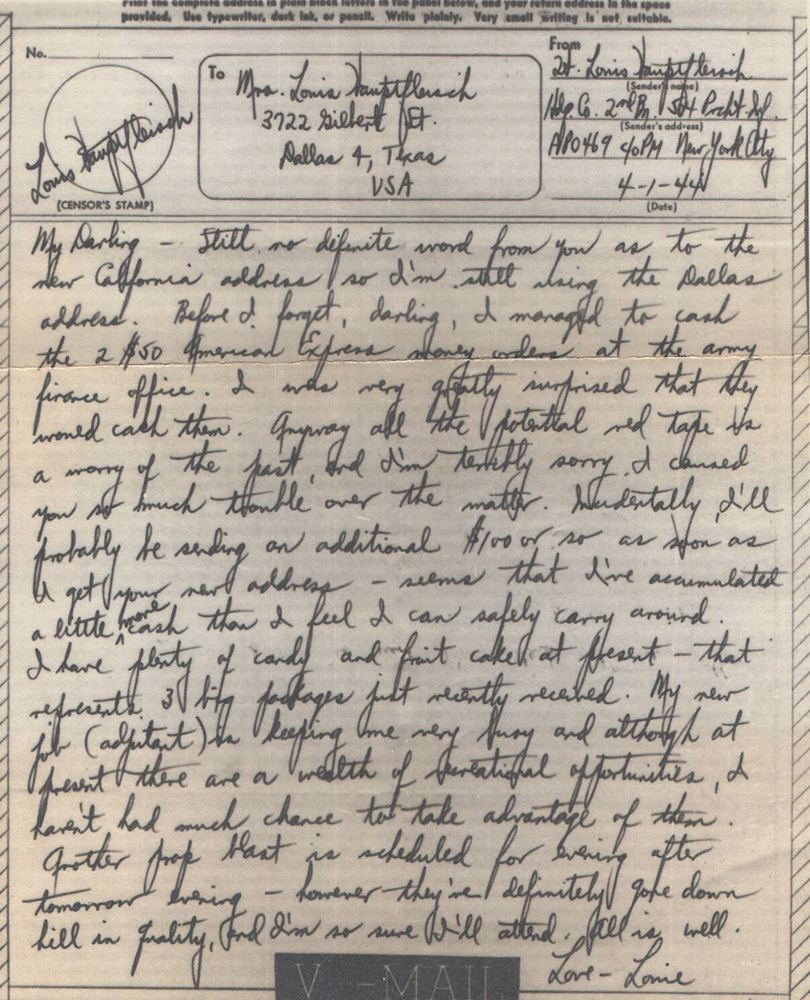 Print the complete address in plain block letters in the panel below, and your return address in the space
provided. Use typewriter, dark ink, or pencil. Write plainly. Very small writing is not suitable.
No.
Louis Hauptfleisch
(CENSOR'S STAMP)
To
Mrs. Louis Hauptfleisch
3722 Gilbert St.
Dallas 4, Texas
USA
From
Lt. Louis Hauptfleisch
(Sender's name)
Hdq Co. 2nd Bn. 504 Prcht Inf.
(Sender's address)
APO 469 c/o PM New York City
4-1-44
(Date)
My Darling - Still no definite word from you as to the
new California address so I'm still using the Dallas
address. Before I forget, darling, I managed to cash
the 2 $50 American Express money orders at the army
finance office. I was very greatly surprised that they
would cash them. Anyway all the potential red tape is
a worry of the past, and I'm terribly sorry I caused
you so much trouble over the matter. Incidentally, I'll
probably be sending an additional $100 or so as soon as
I get your new address - seems that I've accumulated
a little more cash than I feel I can safely carry around.
I have plenty of candy and fruit cake at present - that
represents 3 big packages just recently received. My new
job (adjutant) is keeping me very busy and although at
present there are a wealth of recreational opportunities, I
haven't had much chance to take advantage of them.
Another prop blast is scheduled for evening after
tomorrow evening - however they've definitely gone down
hill in quality, and I'm so sure I'll attend. All is well.
Love - Louie
V - MAIL